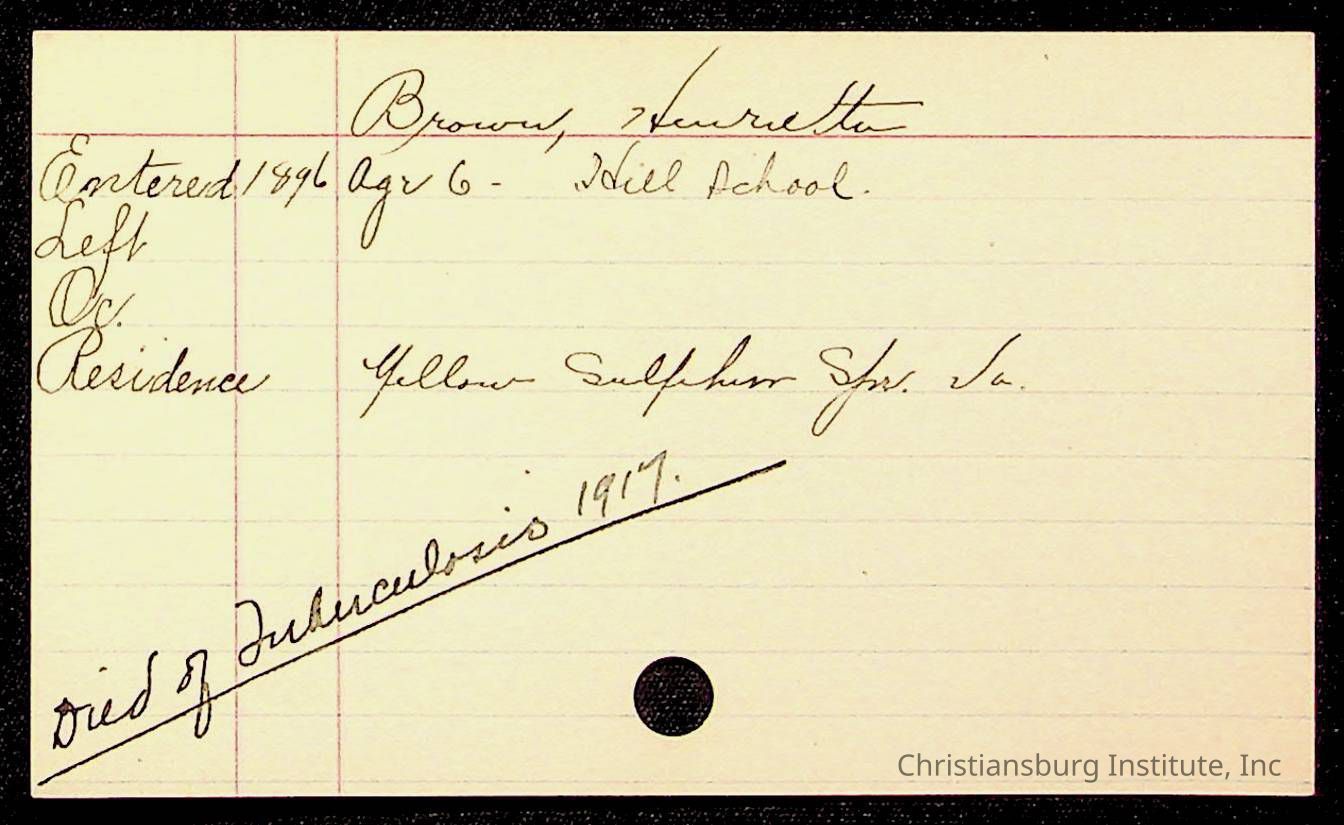 Brown, Henrietta
Entered 1896 Age 6 - Hill School.
Left
Oc.
Residence Yellow Sulphur Spr. Va.
Died of Tuberculosis 1917.
Christiansburg Institute, Inc